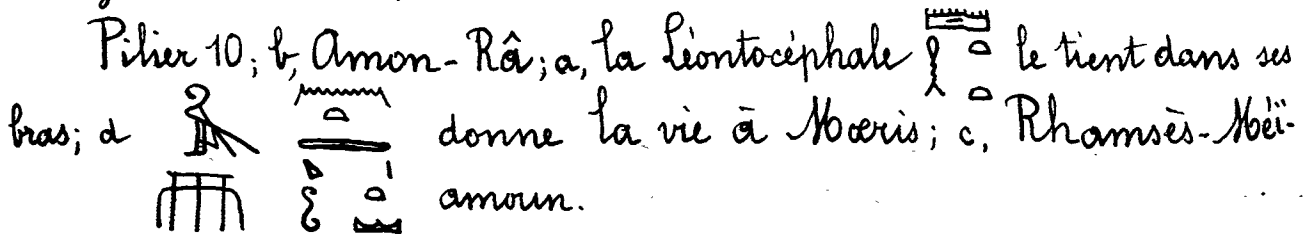 Pilier 10; b, Amon-Râ; a, la Léontocéphale le tient dans ses
bras; d donne la vie à Mœris; c, Rhamsès-Méï-
amoun.